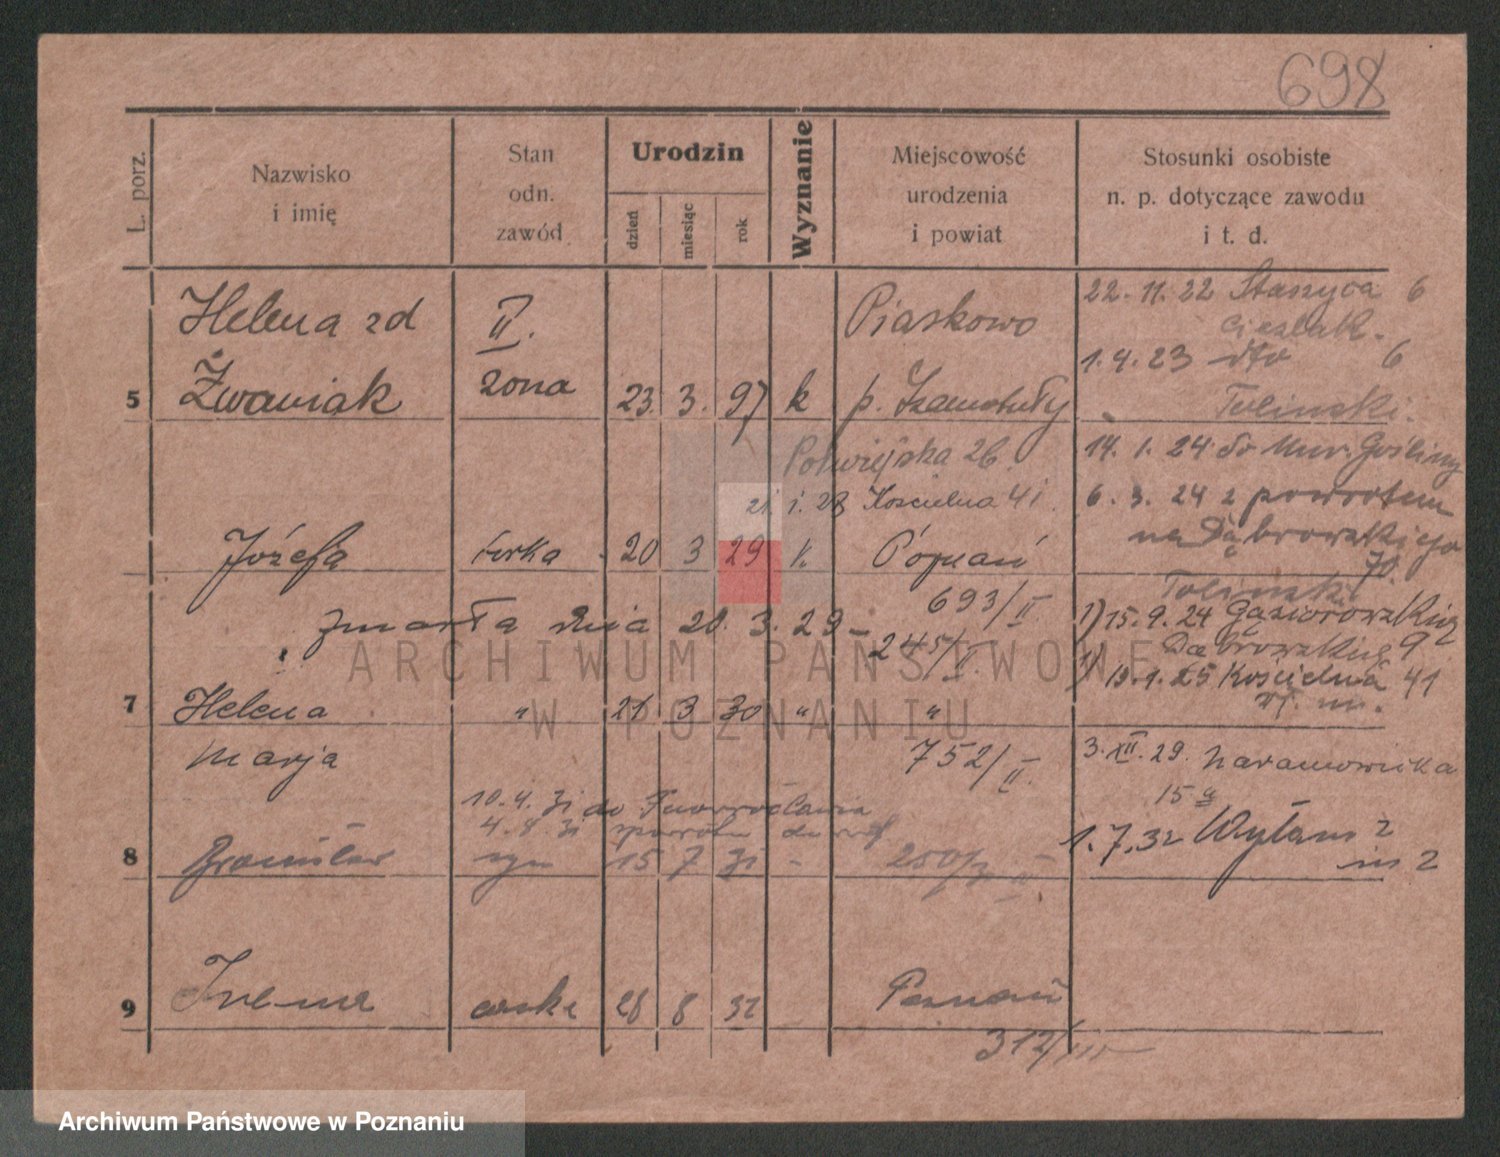 698
L. porz.
Nazwisko
i imię
Stan
odn.
zawód
Urodzin
dzień
miesiąc
rok
Wyznanie
Miejscowość
urodzenia
i powiat
Stosunki osobiste
n. p. dotyczące zawodu
i t. d.
5
Helena zd
Żwawiak
II.
żona
23. 3. 97
k
Piaskowo
p. Szamotuły
22. 11. 22 Staszyca 6
Cieślak.
1. 4. 23 dto 6
Tuliński.
Półwiejska 26.
21. 1. 28 Kościelna 41.
14. 1. 24 do Mur. Gośliny
6. 3. 24 z powrotem
na Dąbrowskiego
70.
Tuliński
Józefa córka 20 3 29 k. Poznań
693/II
zmarła dnia 20. 3. 29 –
245/II.
1) 15. 9. 24 Gąsiorowskich
Dąbrowskiego 9
19. 1. 25 Kościelna 41
7 Helena " 21 3 30 " "
Marja
752/II.
3. XII. 29. Naramowicka
15a
10. 4. 31 do Inowrocławia
4. 8. 31
8 Bronisław syn 15 7 31 -
250/
1. 7. 32
9 Irena córka 28 8 32 Poznań
312/III
ARCHIWUM PAŃSTWOWE
W POZNANIU
Archiwum Państwowe w Poznaniu